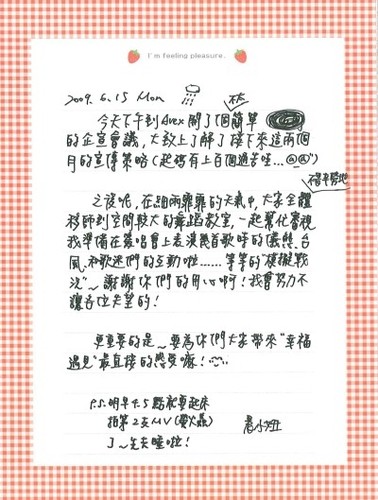 I'm feeling pleasure.
2009. 6. 15 Mon
今天下午到Avex開了個簡單
的企宣會議,大致上了解了接下來這兩個
月的宣傳策略(起碼有上百個通告哇...
之後呢,在細雨霏霏的天氣中,大家全體
移師到空間較大的舞蹈教室,一起幫忙審視
我準備在簽唱會上表演幾首歌時的儀態、台
風、和歌迷們的互動啦......等等的"模擬戰
況"~謝謝你們的用心啊!我會努力不
讓各位失望的!
更重要的是~要為你們大家帶來"幸福
遇見"最直接的感受嘛!
P.S. 明早4.5點就要起床
拍第2支MV(要火藥)
了~先去睡啦!